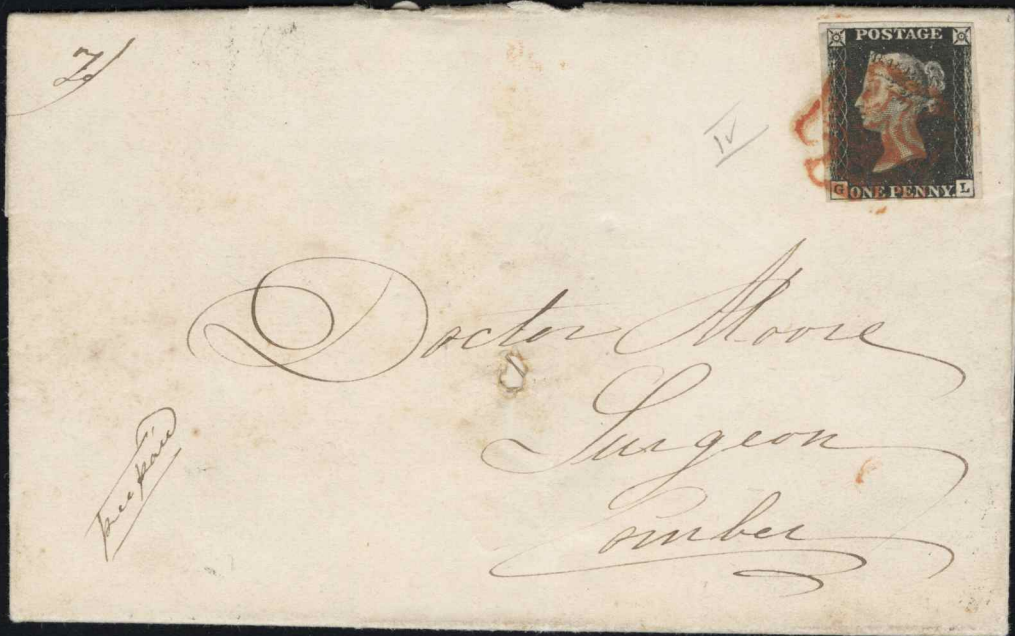 POSTAGE
IV
G ONE PENNY. L
Doctor Moore
Surgeon
Comber